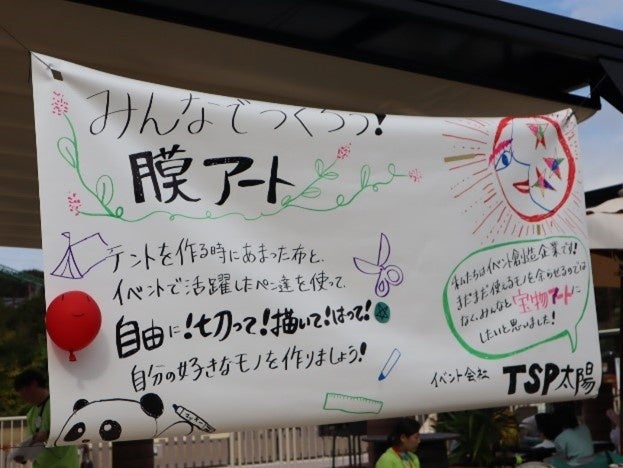 みんなでつくろう!
膜アート
テントを作る時にあまった布と、
イベントで活躍したペン達を使って、
自由に!切って!描いて!はって!
自分の好きなモノを作りましょう!
私たちはイベント創造企業です!
まだまだ使えるモノを余らせるのでは
なく、みんなと宝物アートに
したいと思いました!
イベント会社 TSP太陽